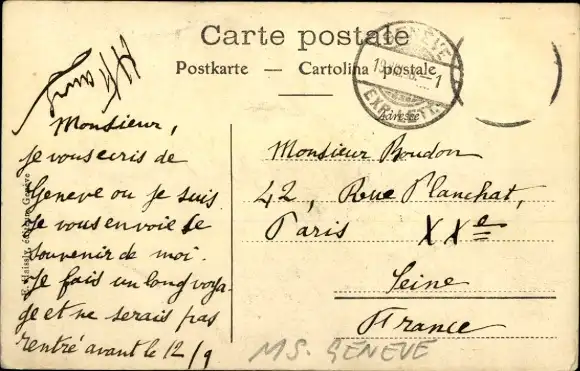 Carte postale
Postkarte — Cartolina postale
GENÈVE
EXP. LETT.
Adresse
Monsieur,
je vous ecris de
Geneve ou je suis
je vous envoie ce
souvenir de moi.
Je fais un long voya
ge et ne serais pas
rentré avant le 12/9
Monsieur Boudon
42, Rue Planchat,
Paris XXe
Seine
France
MS. GENEVE